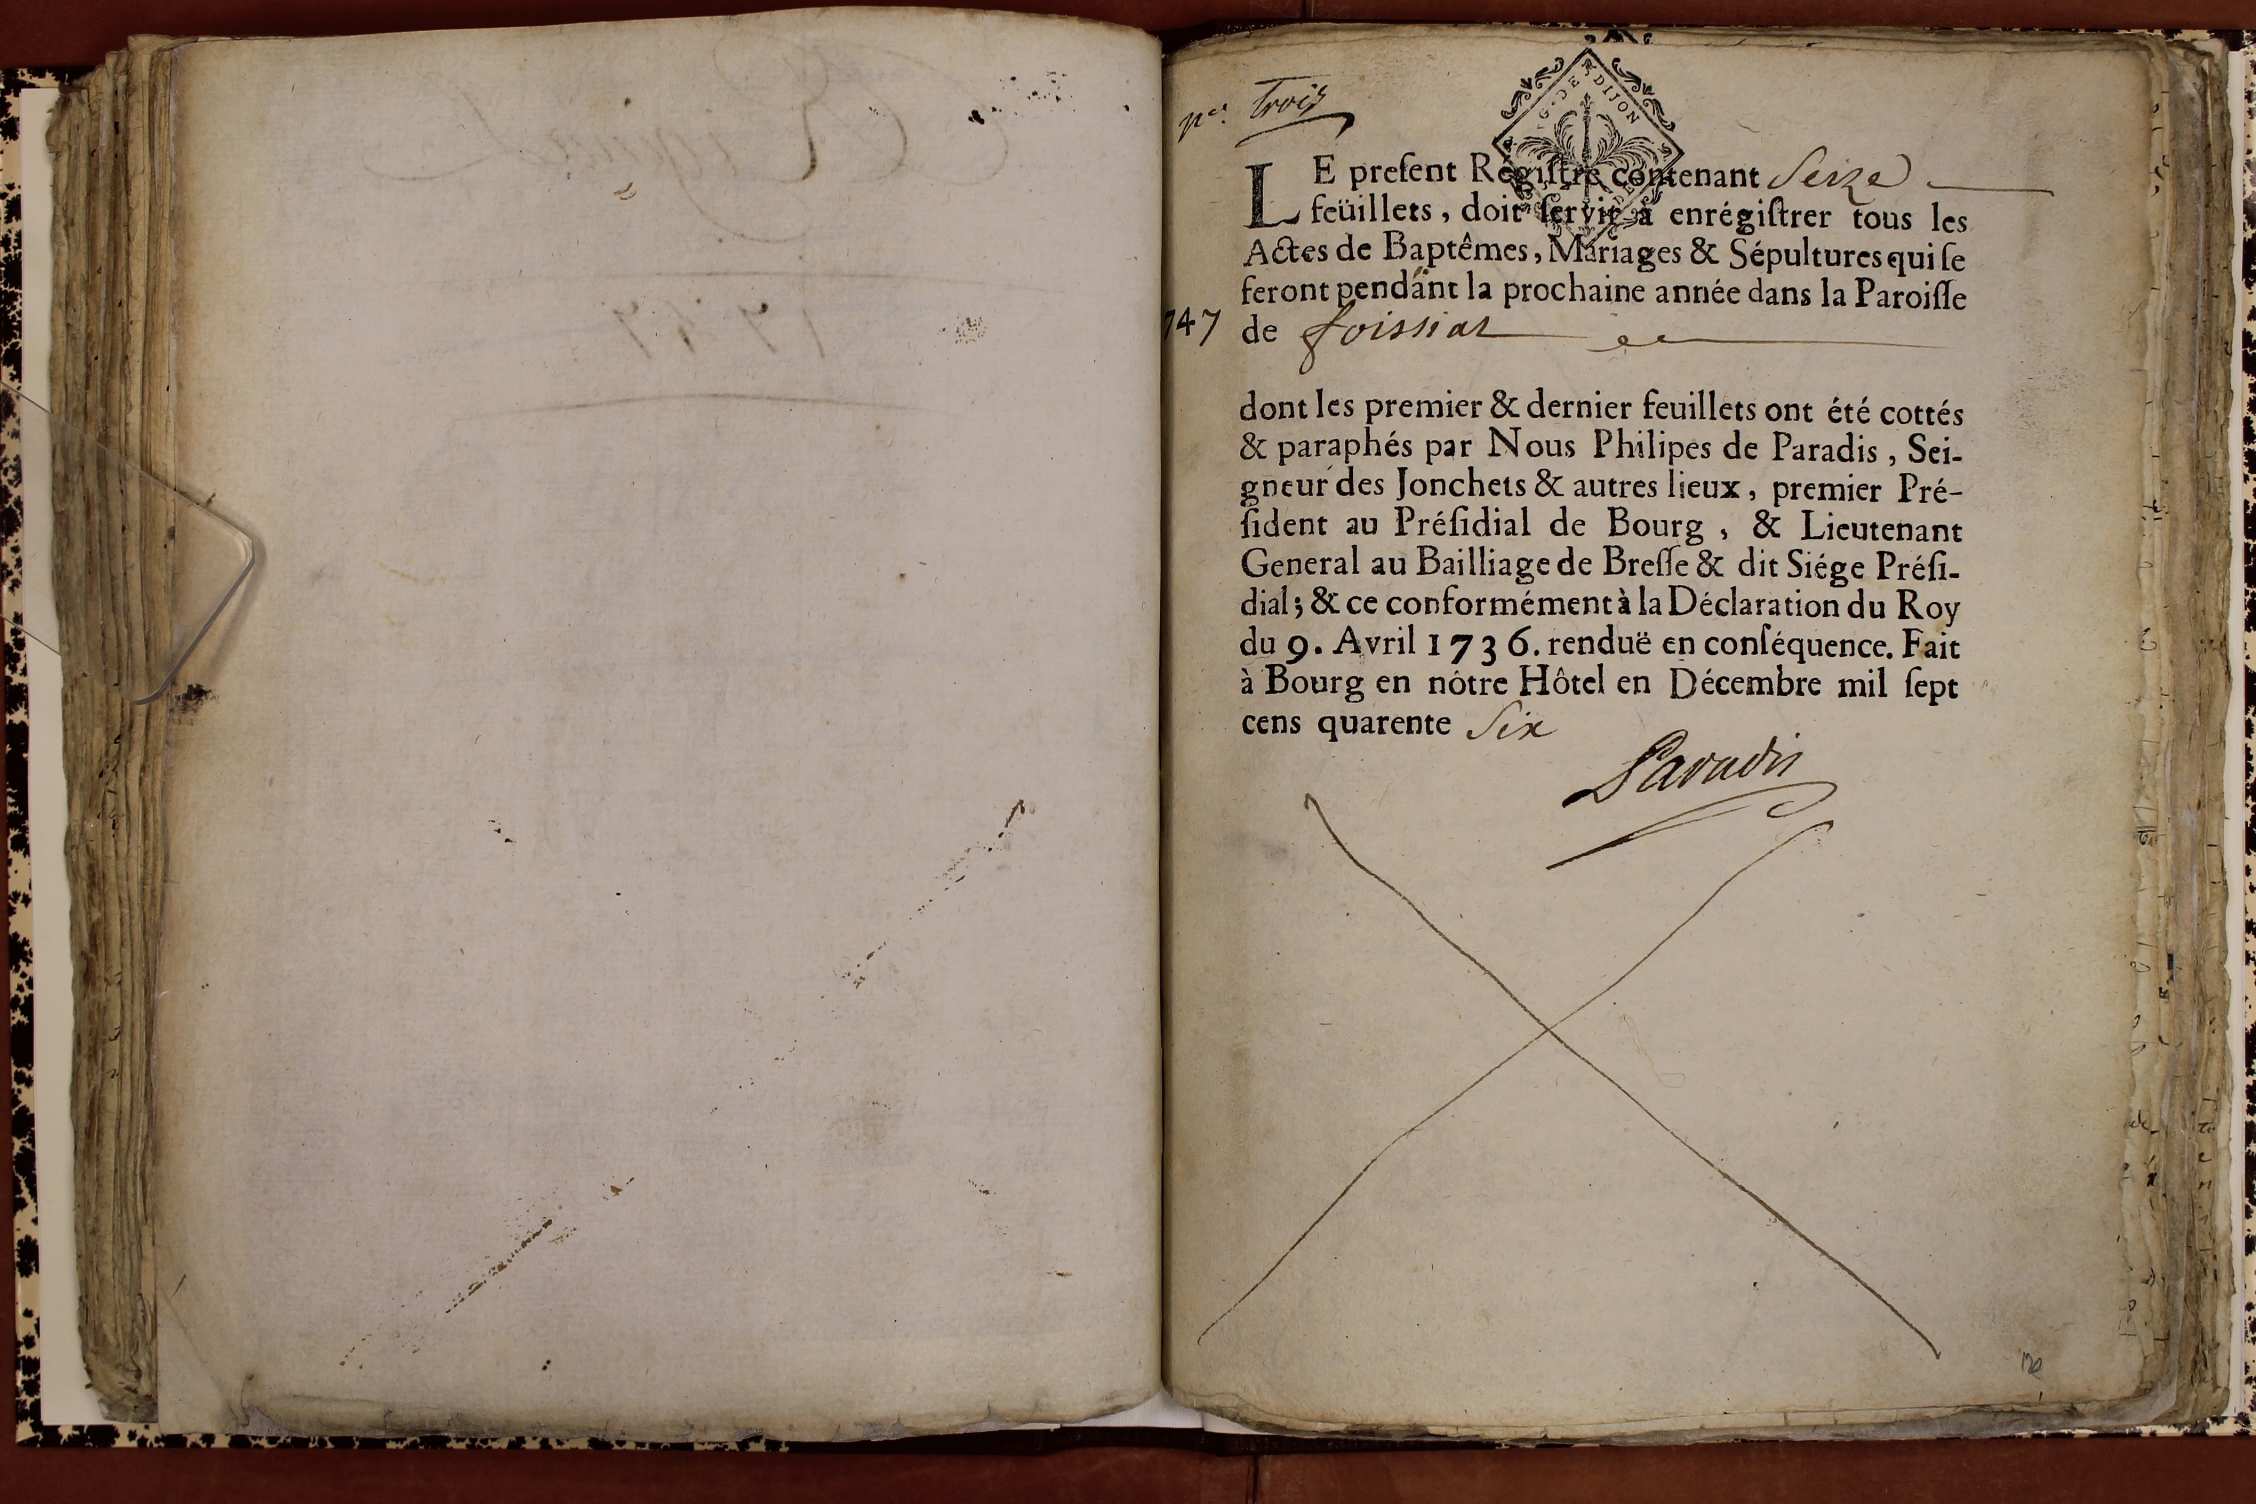 1747
Trois
G. DE DIJON
LE preſent Régiſtre contenant Seize
feüillets, doit ſervir à enrégiſtrer tous les
Actes de Baptêmes, Mariages & Sépultures qui ſe
feront pendant la prochaine année dans la Paroiſſe
747 de foissiat
dont les premier & dernier feuillets ont été cottés
& paraphés par Nous Philipes de Paradis, Sei-
gneur des Jonchets & autres lieux, premier Pré-
ſident au Préſidial de Bourg, & Lieutenant
General au Bailliage de Breſſe & dit Siége Préſi-
dial; & ce conformément à la Déclaration du Roy
du 9. Avril 1736. renduë en conſéquence. Fait
à Bourg en nôtre Hôtel en Décembre mil ſept
cens quarente Six
Paradis